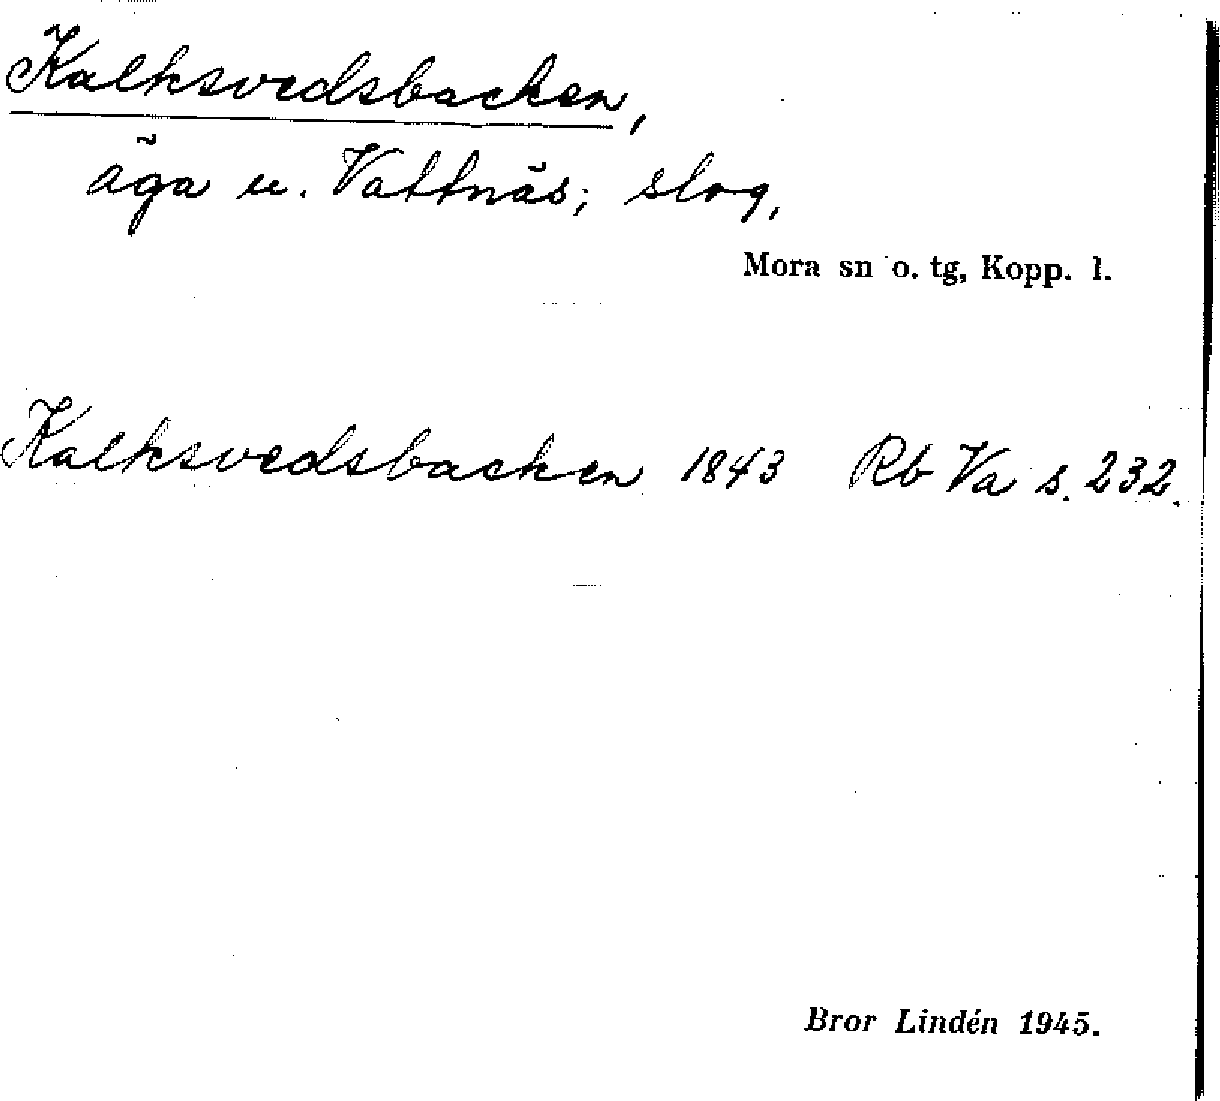 Kalksvedsbacken,
äga u. Vattnäs; slog,
Mora sn o. tg, Kopp. l.
Kalksvedsbacken 1843 Rb Va s. 232.
Bror Lindén 1945.